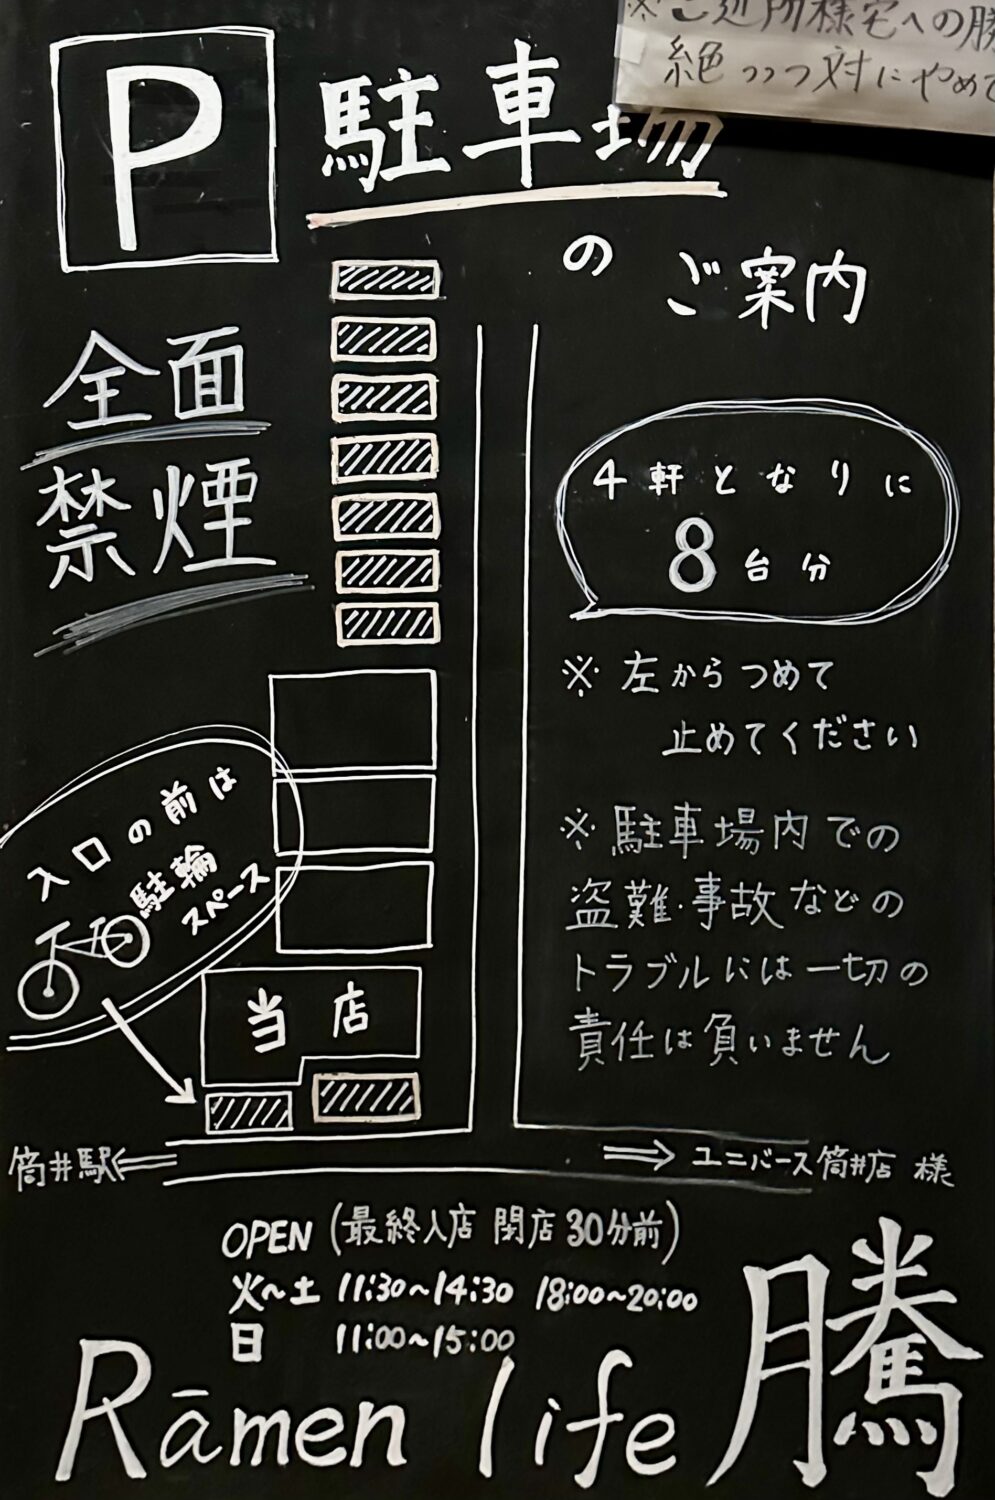 ※ご近所様宅への
絶っっっ対にやめて
P 駐車場
の
ご案内
全面
禁煙
4軒となりに
8台分
※左からつめて
止めてください
※駐車場内での
盗難・事故などの
トラブルには一切の
責任は負いません
入口の前は
駐輪
スペース
当店
筒井駅⇐
⇒ユニバース筒井店 様
OPEN (最終入店 閉店30分前)
火~土 11:30~14:30 18:00~20:00
日 11:00~15:00
Rāmen life 騰